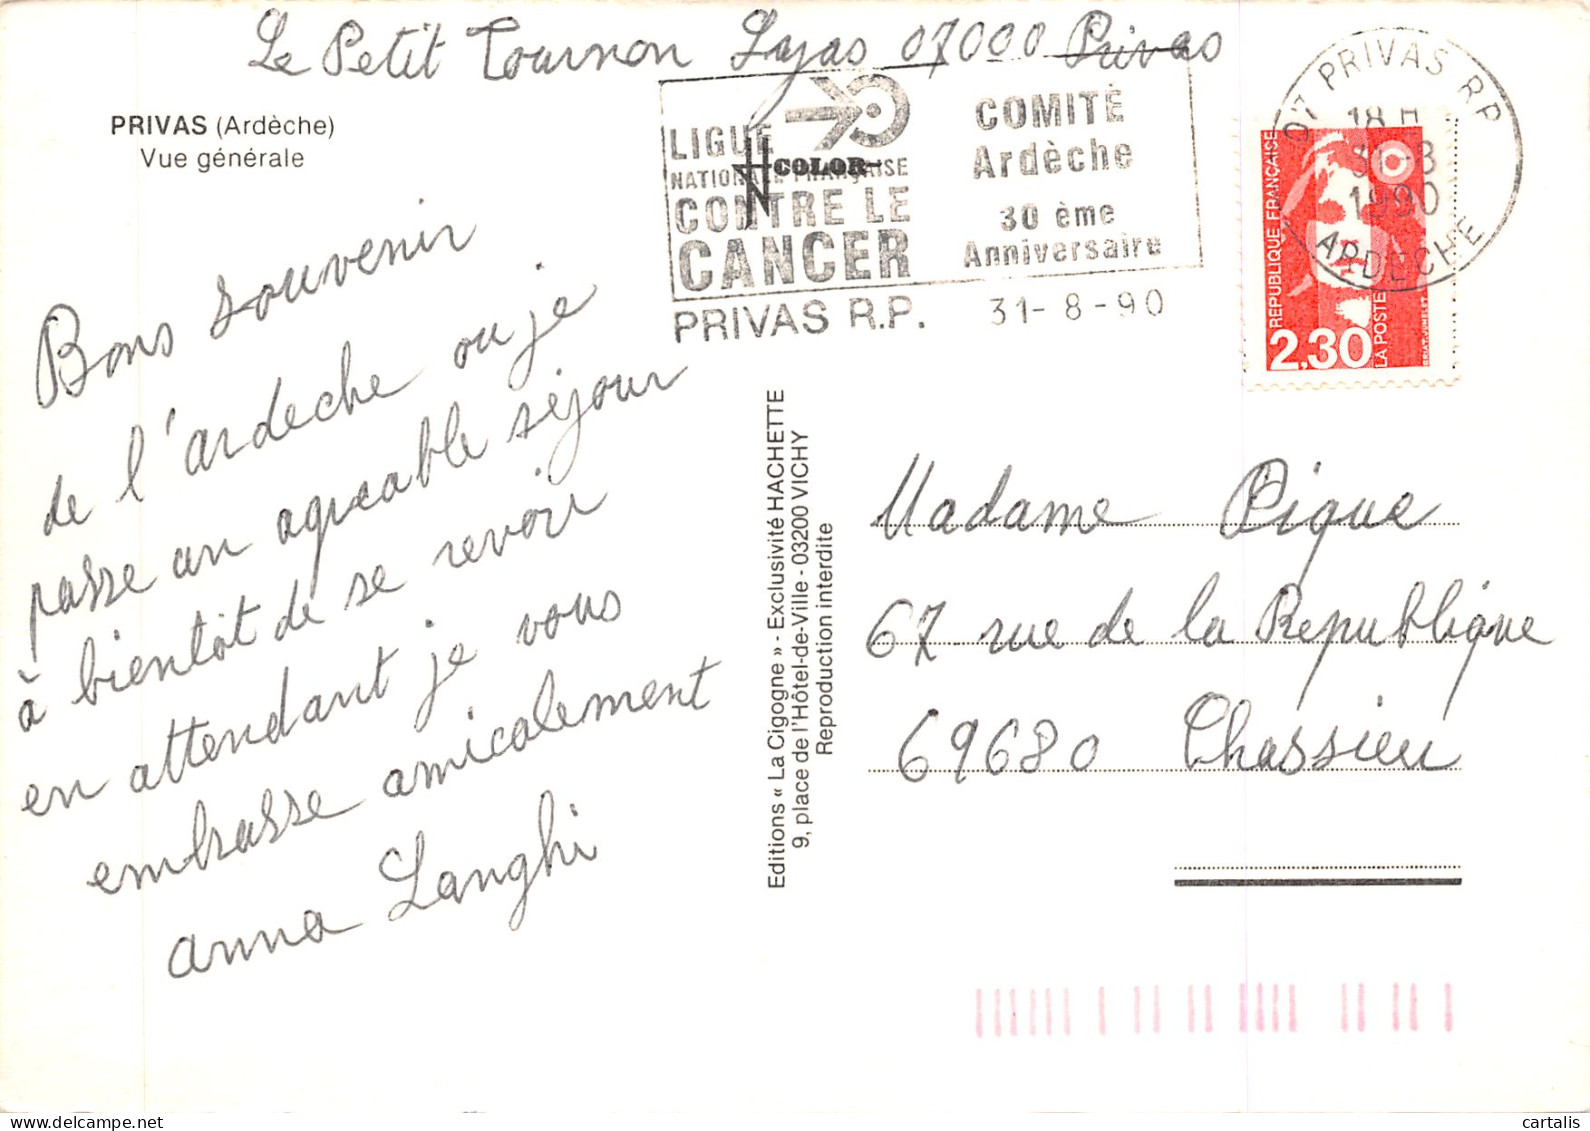 Le Petit Tournon Lyas 07000 Privas
PRIVAS (Ardèche)
Vue générale
LIGUE
NATIONALE FRANÇAISE
CONTRE LE
CANCER
COLOR
COMITÉ
Ardèche
30 ème
Anniversaire
PRIVAS R.P. 31-8-90
07 PRIVAS RP
18 H
31-8
1990
ARDECHE
REPUBLIQUE FRANÇAISE
2,30
LA POSTE
Bons souvenir
de l'ardeche ou je
passe un agreable séjour
à bientôt de se revoir
en attendant je vous
embrasse amicalement
anna Langhi
Editions « La Cigogne » - Exclusivité HACHETTE
9, place de l'Hôtel-de-Ville - 03200 VICHY
Reproduction interdite
Madame Pique
67 rue de la Republique
69680 Chassieu
cartalis